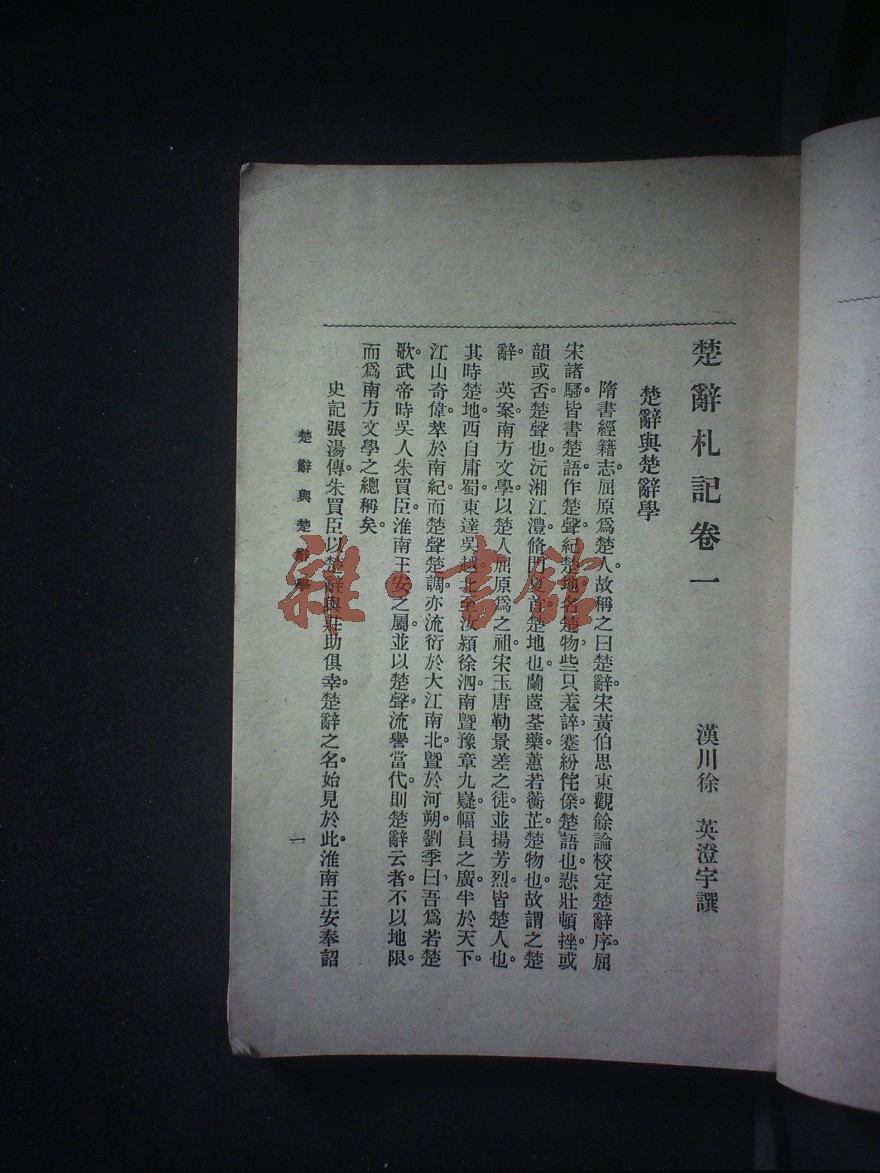 楚辭札記卷一
漢川徐　英澄宇譔
楚辭與楚辭學
隋書經籍志。屈原爲楚人。故稱之曰楚辭。宋黃伯思東觀餘論校定楚辭序。屈
宋諸騷。皆書楚語。作楚聲。紀楚地。名楚物。些只羌誶蹇紛侘傺。楚語也。悲壯頓挫。或
韻或否。楚聲也。沅湘江澧脩門夏首。楚地也。蘭茝荃藥蕙若蘅芷。楚物也。故謂之楚
辭。　英案南方文學。以楚人屈原爲之祖。宋玉唐勒景差之徒。並揚芳烈。皆楚人也。
其時楚地。西自庸蜀。東達吳越。北至汝潁徐泗。南暨豫章九嶷。幅員之廣。半於天下。
江山奇偉。萃於南紀。而楚聲楚調。亦流衍於大江南北。暨於河朔。劉季曰。吾爲若楚
歌。武帝時。吳人朱買臣。淮南王安之屬。並以楚聲流譽當代。則楚辭云者。不以地限。
而爲南方文學之總稱矣。
史記張湯傳。朱買臣以楚辭與莊助俱幸。楚辭之名。始見於此。淮南王安奉詔
楚辭與楚辭學
一
雜·書館